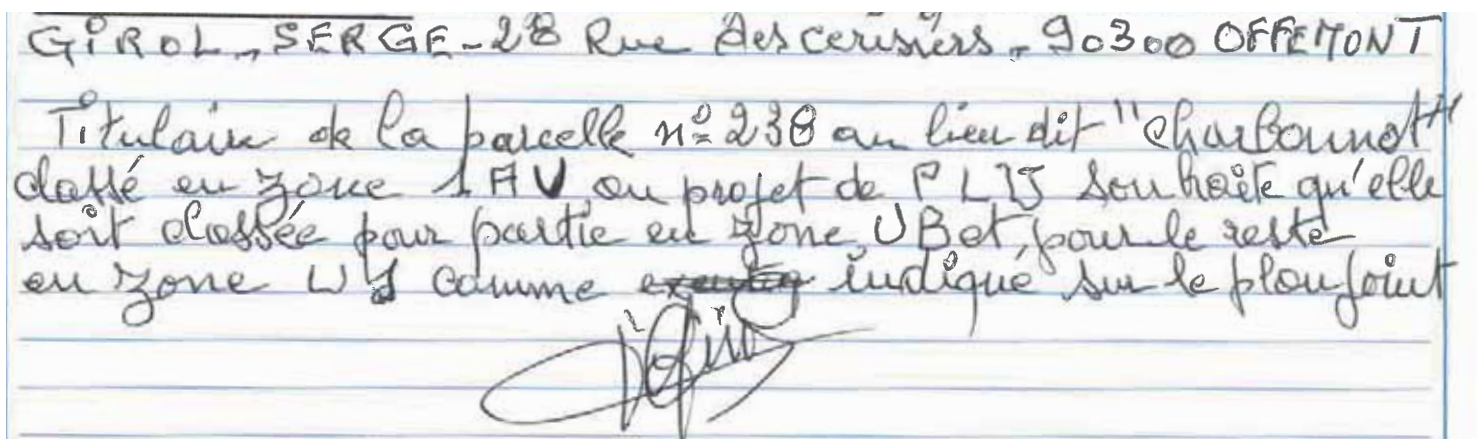 GIROL - SERGE - 28 Rue des cerisiers - 90300 OFFEMONT
Titulaire de la parcelle n° 238 au lieu dit "Charbonnot"
classé en zone 1AU au projet de PLU souhaite qu'elle
soit classée pour partie en zone UB et, pour le reste
en zone UJ comme indiqué sur le plan joint